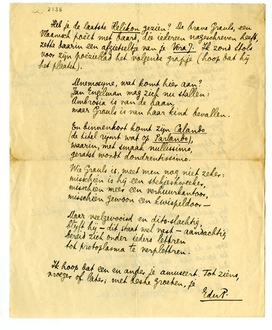 2136
Heb je de laatste Helikon gezien? De brave Grauls, een
Vlaamsch poëet met baard, die iedereen nageschreven heeft,
zette daarin een afzetseltje van je Vera?. Ik zond Stols
voor zijn poëzieblad het volgende grapje (hoop dat hij
het plaatst).
Mnemosyne, wat komt hier aan?
Jan Engelman mag zich nu stallen:
Ambrosia is van de baan,
maar Grauls is van haar kind bevallen.
En binnenkort komt zijn Calando
de titel rijmt wat op Parlando),
waarin, met smaak nullissimo,
gerast wordt dondrentissimo.
Wie Grauls is, weet men nog niet zeker:
misschien is hij een schijfschieter,
misschien meer een verhuurkantoor,
misschien gewoon een kwispeldoor —
Maar welgevoed en dito-slachtig,
blijft hij — dit staat wel vast — aandachtig
bereid zich onder ieders letteren
tot protoplasma te verpletteren.
Ik hoop dat een en ander je amuseert. Tot ziens,
vroeger of later; met beste groeten, je
EduP.